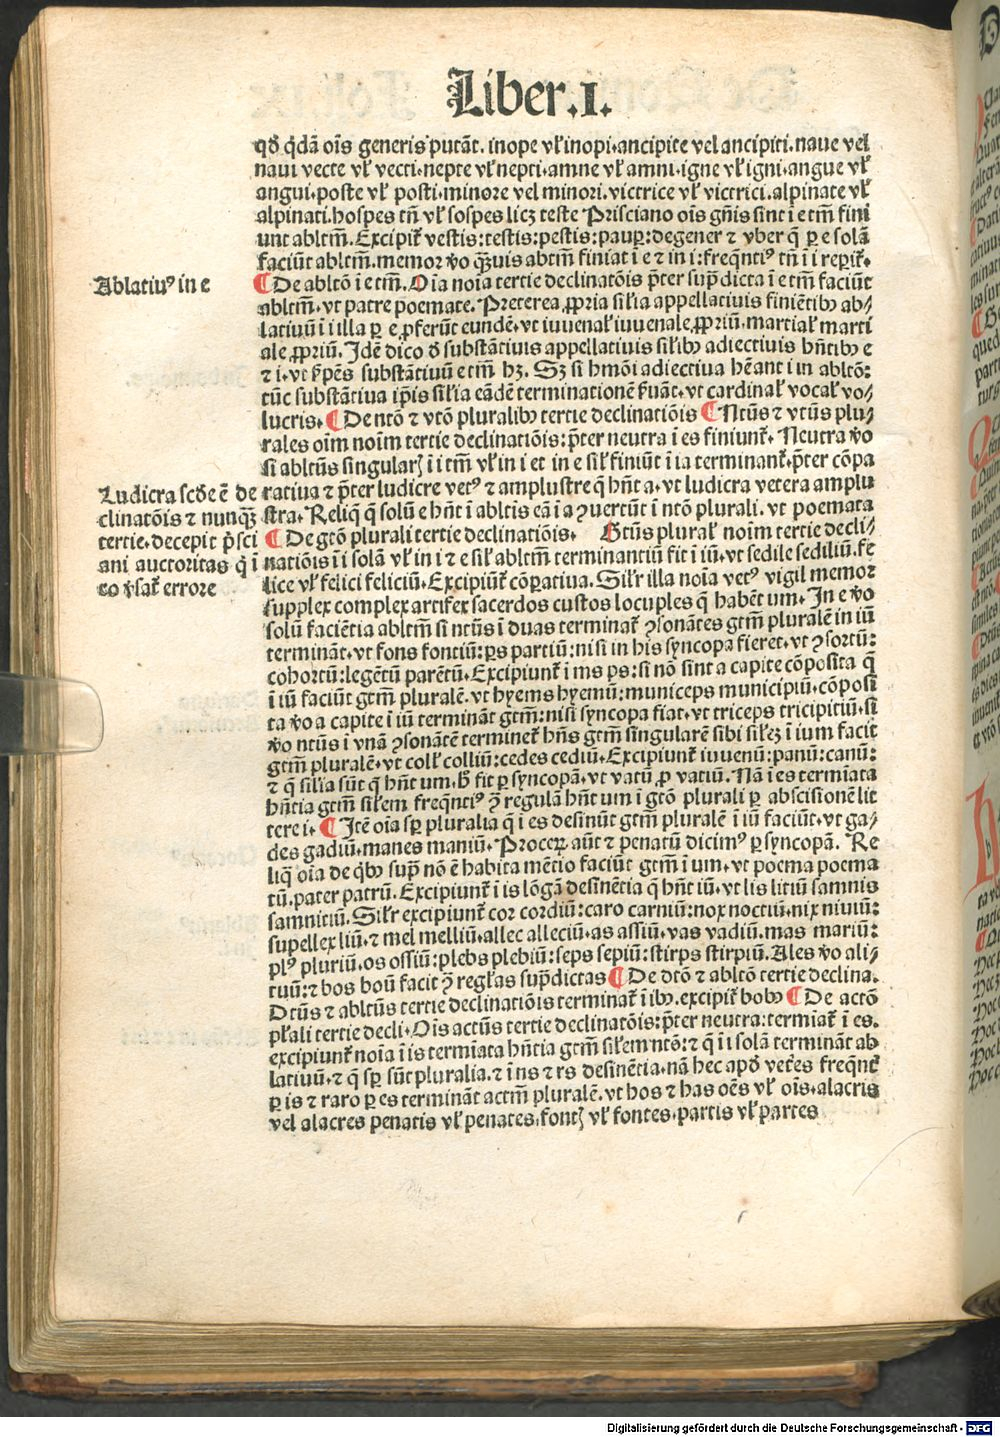 Liber.I.
qd̕ q̇dã oı̃s generis putãt. inope vl̕ inopi.ancipite vel ancipiti.naue vel
naui vecte vl̕ vecti.nepte vl̕ nepti.amne vl̕ amni.igne vl̕ igni.angue vl̕
angui.poste vl̕ posti.minore vel minori.victrice vl̕ victrici.alpinate vl̕
alpinati.hospes tñ vl̕ sospes licꝫ teste Prisciano oı̃s gñis sint ĩ e tm̃ fini
unt abltm̃. Excipit̃ vestis:testis:pestis:paup̲:degener ⁊ vber q̃ p̲ e solã
faciũt abltm̃.memor v̊o qꝫuis abtm̃ finiat ĩ e ⁊ in i:freq̃ntiꝰ tñ ĩ i repit̃.
Ablatiuꝰ in e
¶ De abltõ ĩ e tm̃. Oı̃a noı̃a tertie declinatõis p̃ter sup̃dicta ĩ e tm̃ faciũt
abltm̃.vt patre poemate. Preterea ꝓpria sil̕ia appellatiuis finiẽtibꝰ ab/
latiuũ ĩ i illa p̲ e ꝓferũt eundẽ.vt iuuenal̕ iuuenale ꝓpriũ.martial̕ marti
ale ꝓpriũ. Idẽ dico d̕ substãtiuis appellatiuis sil̕ibꝰ adiectiuis hñtibꝰ e
⁊ i.vt r̃pẽs substãtiuũ e tm̃ hꝫ. Sꝫ si hmõi adiectiua hẽant i in abltõ:
tũc substãtiua ip̃is sil̕ia eãdẽ terminationẽ s̃uãt.vt cardinal̕ vocal̕ vo/
lucris. ¶ De ntõ ⁊ vtõ pluralibꝰ tertie declinatiõis ¶ Ntũs ⁊ vtũs plu/
rales oı̃m noı̃m tertie declinatiõis:p̃ter neutra ĩ es finiunt̃. Neutra v̊o
si abltũs singularꝭ ĩ i tm̃ vl̕ in i et in e sil̕ finiũt ĩ ia terminant̃.p̃ter cõpa
ratiua ⁊ p̃ter ludicre vetꝰ ⁊ amplustre q̃ hñt a.vt ludicra vetera amplu
stra. Reliq̃ q̃ solũ e hñt ĩ abltis eã ĩ a ꝯuertũt ĩ ntõ plurali.vt poemata
Ludicra scd̕e ẽ de
clinatõis ⁊ nunqꝫ
tertie.decepit p̃sci
ani auctoritas q̃ ĩ
eo v̊sat̃ errore
¶ De gtõ plurali tertie declinatiõis. Gtũs plural̕ noı̃m tertie decli/
nationis ĩ i solã vl̕ in i ⁊ e sil̕ abltm̃ terminantiũ fit ĩ iũ.vt sedile sediliũ.fe
lice vl̕ felici feliciũ. Excipiũt̃ cõp̲atiua. Sil̕r illa noı̃a vetꝰ vigil memor
supplex complex artifex sacerdos custos locuples q̃ habẽt um. In e v̊o
solũ faciẽtia abltm̃ si ntũs ĩ duas terminat̃ ꝯsonãtes gtm̃ pluralẽ in iũ
terminãt.vt fons fontiũ:ps partiũ:nisi in his syncopa fieret.vt ꝯsortũ:
cohortũ:legẽtũ parẽtũ. Excipiunt̃ ĩ ms ps:si nõ sint a capite cõposita q̃
ĩ iũ faciũt gtm̃ pluralẽ.vt hyems hyemũ:municeps municipiũ.cõposi
ta v̊o a capite ĩ iũ terminãt gtm̃:nisi syncopa fiat.vt triceps tricipitiũ.si
v̊o ntũs ĩ vnã ꝯsonãtẽ terminet̃ hñs gtm̃ singularẽ sibi sil̕eꝫ ĩ ium facit
gtm̃ pluralẽ.vt coll̕ colliũ:cedes cediũ. Excipiunt̃ iuuenũ:panũ:canũ:
⁊ q̃ sil̕ia sũt q̃ hñt um.h̕ fit p̲ syncopã.vt vatũ ꝓ vatiũ. Nã ĩ es termĩata
hñtia gtm̃ sil̕em freq̃ntiꝰ ꝯ̃ regulã hñt um ĩ gtõ plurali p̲ abscisionẽ lit
tere i. ¶ Itẽ oı̃a sp̲ pluralia q̃ ĩ es desinũt gtm̃ pluralẽ ĩ iũ faciũt.vt ga/
des gadiũ.manes maniũ. Procerꝫ aũt ⁊ penatũ dicimꝰ p̲ syncopã. Re
liq̃ oı̃a de q̇bꝰ sup̃ nõ ẽ habita mẽtio faciũt gtm̃ ĩ um.vt poema poema
tũ.pater patrũ. Excipiunt̃ ĩ is lõgã desinẽtia q̃ hñt iũ.vt lis litiũ samnis
samnitiũ. Sil̕r excipiunt̃ cor cordiũ:caro carniũ:nox noctiũ.nix niuiũ:
supellex liũ.⁊ mel melliũ.allec alleciũ.as assiũ.vas vadiũ.mas mariũ:
plꝰ pluriũ.os ossiũ:plebs plebiũ:seps sepiũ:stirps stirpiũ. Ales v̊o ali/
tuũ:⁊ bos boũ facit ꝯ̃ regl̕as sup̃dictas ¶ De dtõ ⁊ abltõ tertie declina.
Dtũs ⁊ abltũs tertie declinatiõis terminat̃ ĩ ibꝰ.excipit̃ bobꝰ ¶ De actõ
pl̕ali tertie decli. Oı̃s actũs tertie declinatõis:p̃ter neutra:termĩat̃ ĩ es.
excipiunt̃ noı̃a ĩ is termĩata hñtia gtm̃ sil̕em ntõ:⁊ q̃ ĩ i solã terminãt ab
latiuũ.⁊ q̃ sp̲ sũt pluralia.⁊ ĩ ns ⁊ rs desinẽtia.nã hec apd̕ veteres freq̃nt̃
p̲ is ⁊ raro p̲ es terminãt actm̃ pluralẽ.vt hos ⁊ has oẽs vl̕ oı̃s.alacris
vel alacres penatis vl̕ penates.fontꝭ vl̕ fontes.partis vl̕ partes
Digitalisierung gefördert durch die Deutsche Forschungsgemeinschaft - DFG